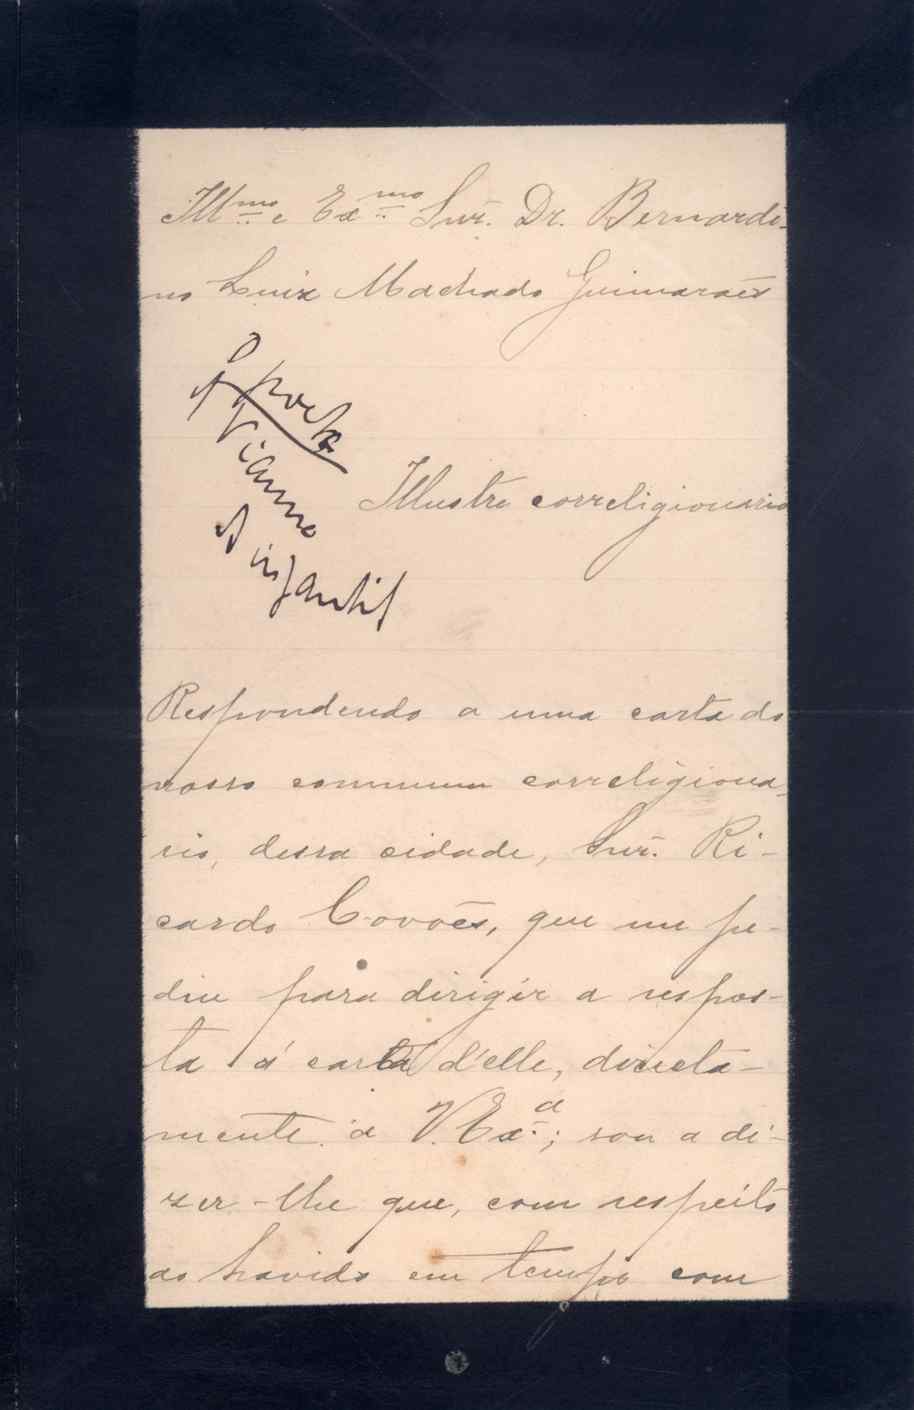 Illmo e Exmo Snr. Dr. Bernardi-
no Luiz Machado Guimarães
Illustre correligionario
infantil
Respondendo a uma carta do
nosso commum correligiona-
rio, dessa cidade, Snr. Ri-
cardo Covões, que me pe-
diu para dirigir a respos-
ta á carta d'elle, directa-
mente a V. Exa.; sou a di-
zer-lhe que, com respeito
ao havido em tempo com